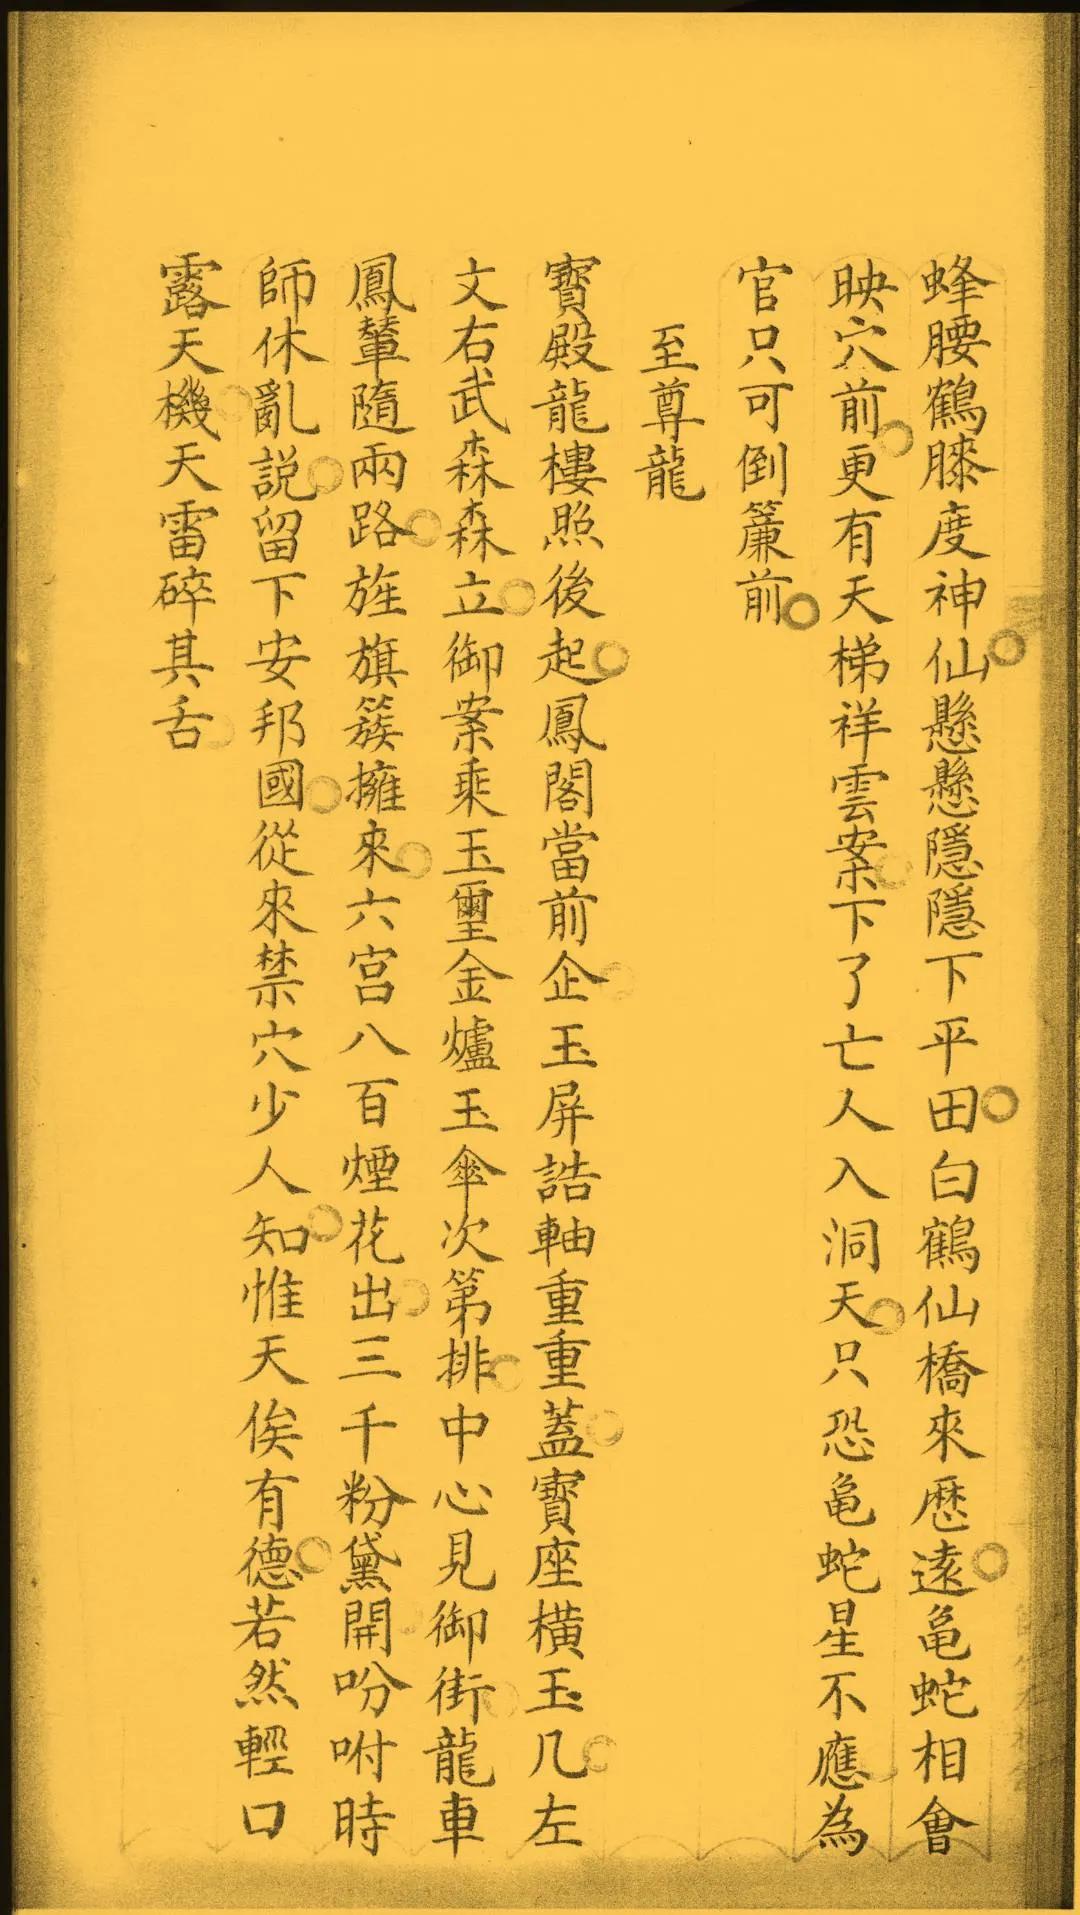 蜂腰鶴膝度神仙懸懸隱隱下平田白鶴仙橋來歷遠亀蛇相會
映穴前更有天梯祥雲案下了亡人入洞天只恐亀蛇星不應為
官只可倒簾前
至尊龍
寶殿龍樓照後起鳳閣當前企玉屏誥軸重重蓋寶座橫玉几左
文右武森森立御案乘玉璽金爐玉傘次第排中心見御街龍車
鳳輦隨兩路旌旗簇擁來六宫八百煙花出三千粉黛開吩咐時
師休亂説留下安邦國從來禁穴少人知惟天俟有德若然輕口
露天機天雷碎其舌